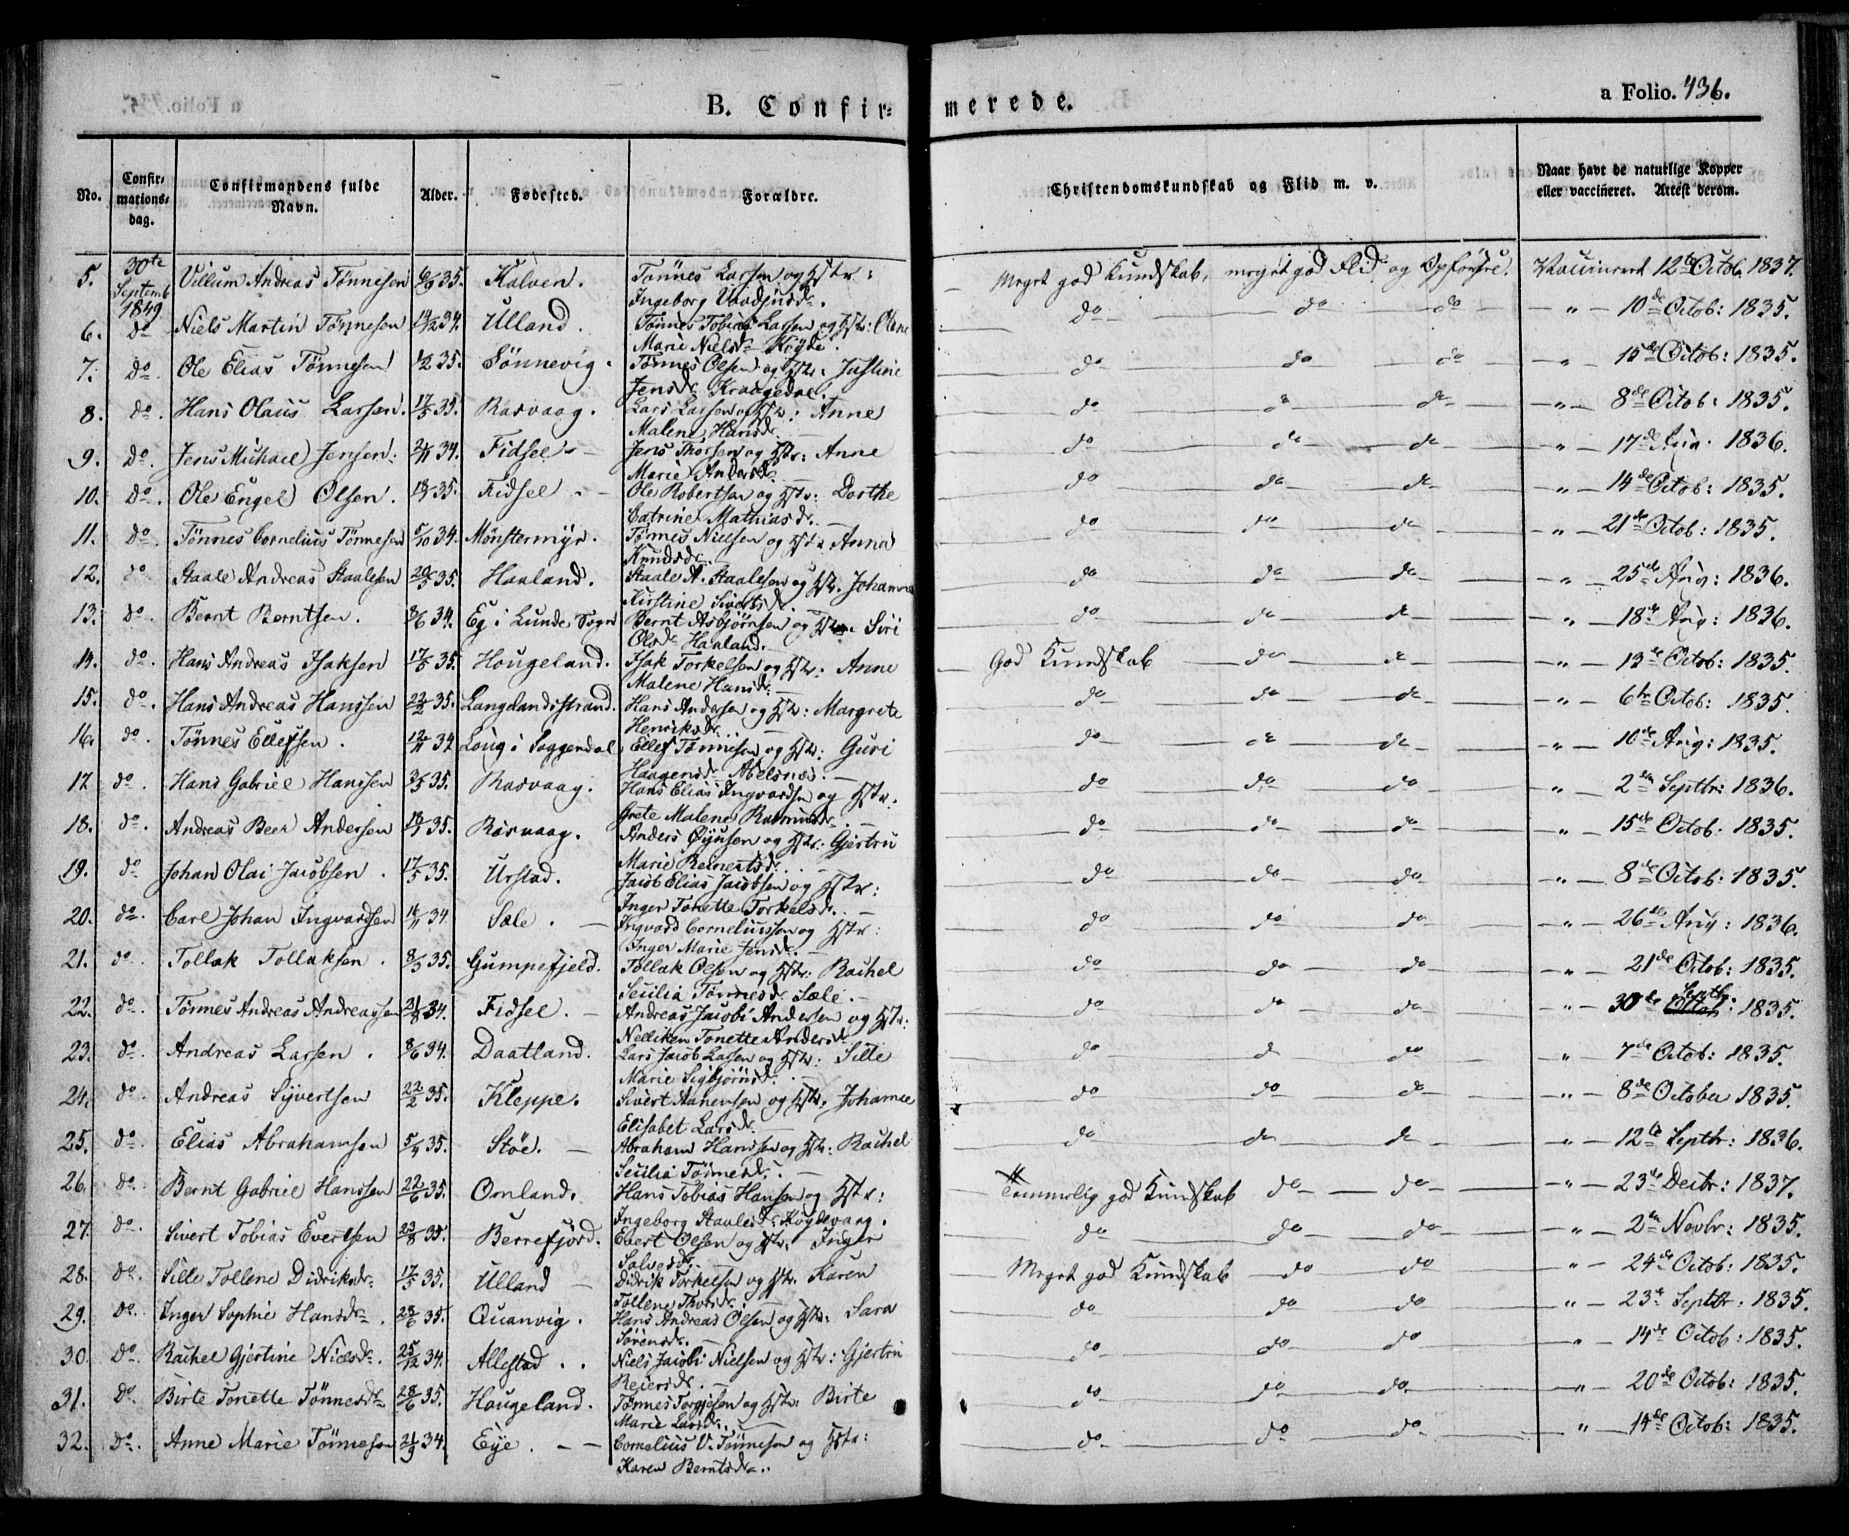 B. Confir-
merede.
a Folio. 436.
No.
Confir-
mations-
dag.
Confirmandens fulde
Navn.
Alder.
Fødested.
Forældre.
Christendomskundskab og Flid m. v.
Naar havt de naturlige Kopper
eller vaccineret. Attest derom.
5. 30te Septemb 1849 Villum Andreas Tönnesen 6/9 35. Kalven. Tönnes Larsen og Hstr: Meget god Kundskab, meget god Flid og Opförsel. Vaccineret 12te Octob. 1837.
Ingeborg
6. do Niels Martin Tönnesen 34. Ulland. Tönnes Tobias Larsen og Hstr: Olene do do do " 10de Octob: 1835.
Marie Nielsdr
7. Do. Ole Elias Tönnesen 35. Sönnevig. Tönnes Olsen og Hstr. Justine do do do " 15de Octob: 1835.
Jensdr. Kraagedal.
8. do. Hans Olaus Larsen. 17/5 35. Rasvaag. Lars Larsen og Hstr: Anne do do do " 8de Octob: 1835.
Malene Hansdr.
9. Do. Jens Michael Jensen. 34. Fidsel. Jens Thorsen og Hstr: Anne do do do " 17de Aug. 1836.
Marie Andersdr.
10. Do. Ole Engel Olsen. 35. Fidsel. Ole Robertsen og Hstr: Dorthe do do do " 14de Octob: 1835.
Catrine Mathiasdr.
11. Do. Tönnes Cornelius Tönnesen 5/10 34. Mönstermyr. Tönnes Nielsen og Hstr. Anna do do do " 21de Octob: 1835.
Knudsdr.
12. do Staale Andreas Staalesen 35. Haaland. Staale A. Staalesen og Hstr. Johanne do do do " 25de Aug: 1836.
Kirstine Sivertsdr.
13. do Bernt Berntsen. 8/6 34. Eg i Lunde Sogn Bernt Asbjörnsen og Hstr Siri do do do " 18de Aug: 1836.
Olsdr. Haaland.
14. do. Hans Andreas Isaksen 17/5 35. Hougeland. Isak Torkelsen og Hstr: Anne God Kundskab do do " 13de Octob: 1835.
Malene Hansdr.
15. do. Hans Andreas Hanssen 22/2 35. Langlandsstrand. Hans Andersen og Hstr: Margrete do do do " 6te Octob: 1835.
Henriksdr.
16. do. Tönnes Ellefsen. 34 Loug i Soggendal Ellef Tönnesen og Hstr: Guri do do do " 10de Aug: 1835.
Haagensdr Abelsnes.
17 do. Hans Gabriel Hanssen 35. Rasvaag. Hans Elias Ingvardsen og Hstr. do do do " 2den Septbr: 1836.
Grete Malene Rasmusdr.
18. do. Andreas Beer Andersen 35. Rasvaag. Anders Öyusen og Hstr: Gjertru do do do " 15de Octob: 1835.
Marie Reinertsdr.
19. do Johan Olai Jacobsen. 17/5 35. Urstad. Jacob Elias Jacobsen og Hstr: do do do " 8de Octob: 1835.
Inger Tonette Torkelsdr.
20. do. Carl Johan Ingvardsen 34. Sæle. Ingvard Corneliussen og Hstr: do do do " 26de Aug: 1836.
Inger Marie Jensdr.
21. do. Tollak Tollaksen. 8/3 35. Gumpefjeld. Tollak Olsen og Hstr: Rachel do do do " 21de Octob: 1835.
Secilia Tönnesdr. Sæle.
22. do. Tönnes Andreas Andreassen 21/8 34. Fidsel. Andreas Jacobi Andersen og Hstr: do do do " 30de Septb: 1835.
Nelliken Tonette Andersdr.
23. do. Andreas Larsen. 8/6 34. Daatland. Lars Jacob Larsen og Hstr: Sille do do do " 7de Octob: 1835.
Marie Sigbjörnsdr.
24. do. Andreas Syvertsen 22/2 35. Kleppe. Sivert Aanensen og Hstr. Johanne do do do " 8de October 1835.
Elisabet Larsdr.
25. do. Elias Abrahamsen 5/4 35. Stöe. Abraham Hanssen og Hstr: Rachel do do do " 12te Septbr: 1836.
Secilia Tönnesdr.
26. do. Bernt Gabriel Hanssen 22/6 35. Omland. Hans Tobias Hansen og Hstr: Temmelig god Kundskab do do " 23de Decbr: 1837.
Ingeborg Staalesdr. Högdevaag.
27. do. Sivert Tobias Evertsen 35. Berrefjord. Evert Olsen og Hstr: Inger do do do " 2den Novbr: 1835.
Salvesdr.
28. do. Sille Tollene Didriksdr. 17/5 35. Ulland Didrik Torkelsen og Hstr. Karen Meget god Kundskab do do " 24de Octob: 1835.
Tollene Thorsdr.
29. do. Inger Sophie Hansdr. 35. Quanvig. Hans Andreas Olsen og Hstr: Sara do do do " 23de Septbr: 1835.
Sörensdr.
30. Do. Rachel Gjertine Nielsdr. 25/12 34. Allestad. Niels Jacobi Nielsen og Hstr: Gjertru do do do " 14de Octob: 1835.
Reiersdr.
31. Do. Birte Tonette Tönnesdr 28/6 35. Hougeland. Tönnes Torgjesen og Hstr. Birte do do do " 20de Octob: 1835.
Marie Larsdr.
32. Do. Anne Marie Tönnesen 34. Eye. Cornelius V. Tönnesen og Hstr: do do do " 14de Octob: 1835.
Karen Berntsdr.